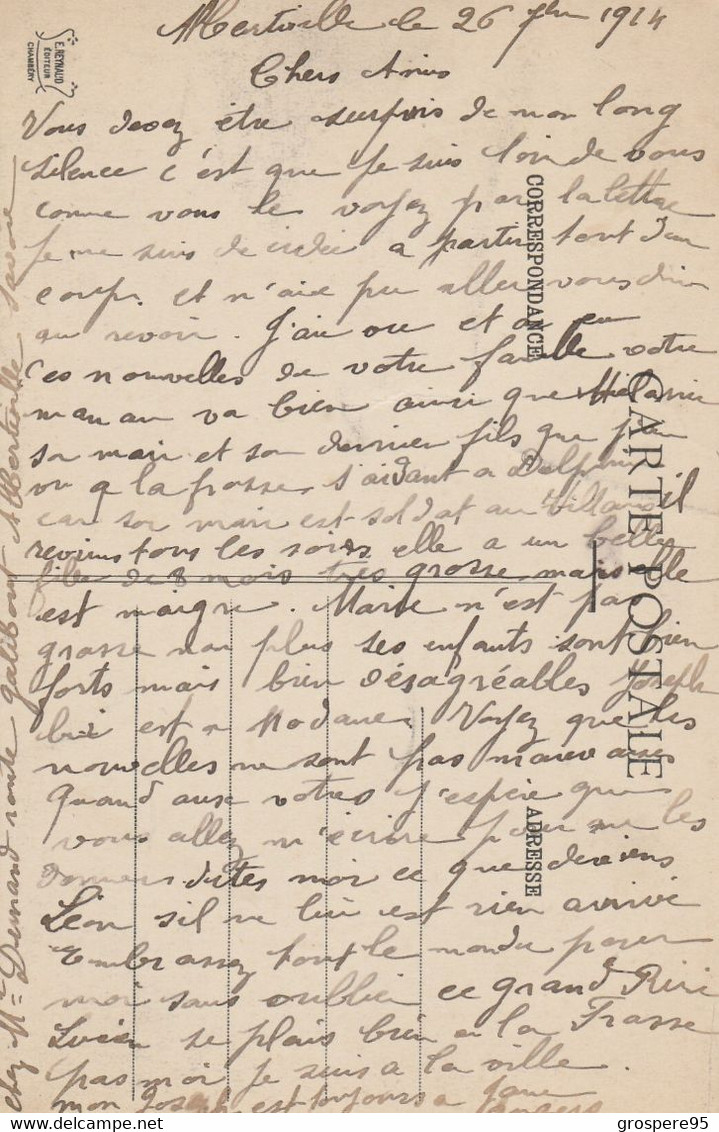 Albertville le 26 1914
Chers Amis
Vous devez être surpris de mon long
silence c'est que je suis loin de vous
comme vous le voyez par la lettre
je me suis decidée a partir tout d'un
coup. et n'aie pu aller vous dire
au revoir. J'ai vu et
des nouvelles de votre famille votre
maman va bien ainsi que Mélanie
son mari et son dernier fils que j'ai
vu a la frasse
car son mari est soldat au Villard il
reviens tous les soirs elle a un belle
fille de 8 mois très grosse mais elle
est maigre. Marie n'est pas
grasse non plus ses enfants sont bien
forts mais bien désagréables Joseph
lui est a Modane. Voyez que les
nouvelles ne sont pas mauvaises
quand aux votres j'espère que
vous allez m'écrire pour me les
donner dites moi ce que deviens
Léon s'il ne lui est rien arrivé
Embrassez tout le monde pour
moi sans oublier ce grand Riri
Lucien se plais bien a la Frasse
pas moi je suis a la ville.
mon Joseph est toujours a
chez Mr Durand route galibour Albertville Savoie
E. REYNAUD
ÉDITEUR
CHAMBÉRY
CORRESPONDANCE
CARTE POSTALE
ADRESSE
delcampe.net
grospere95